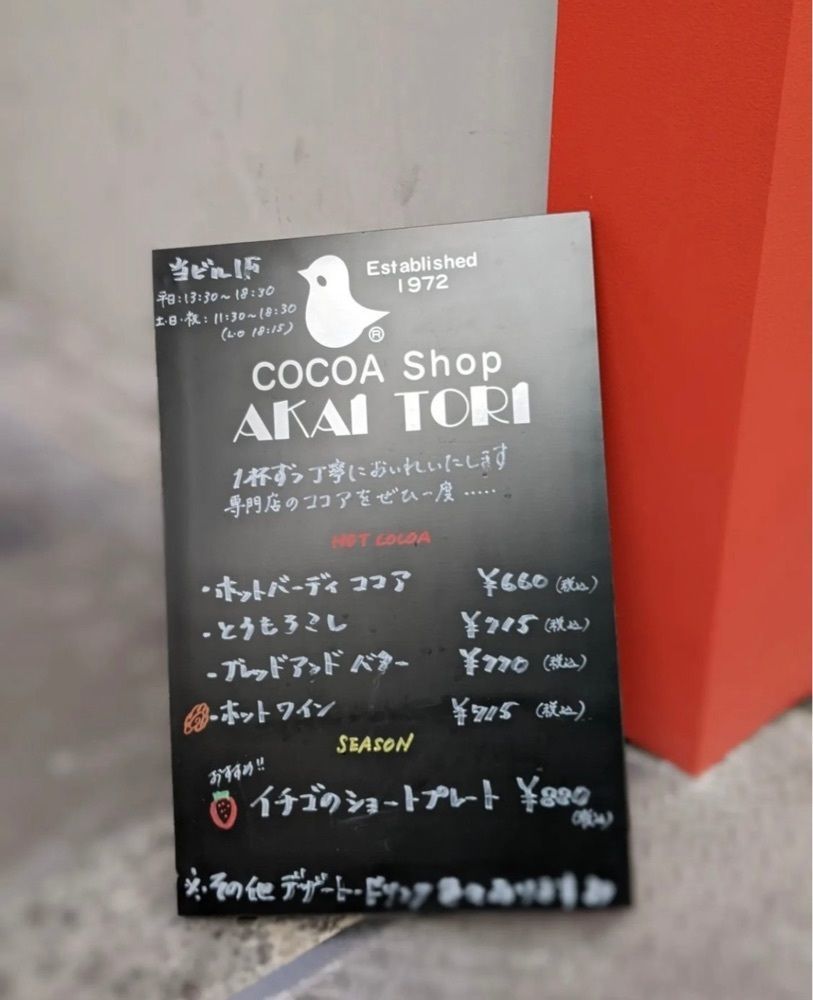 当ビル1F
平日:13:30〜18:30
土・日・祝:11:30〜18:30
(L.O 18:15)
Established
1972
®
COCOA Shop
AKAI TORI
1杯ずつ丁寧においれいたします
専門店のココアをぜひ一度……
HOT COCOA
・ホットバーディココア ¥660(税込)
・とうもろこし ¥715(税込)
・ブレッドアンドバター ¥770(税込)
・ホットワイン ¥715(税込)
SEASON
おすすめ!!
イチゴのショートプレート ¥880
(税込)
※・その他デザート・ドリンク